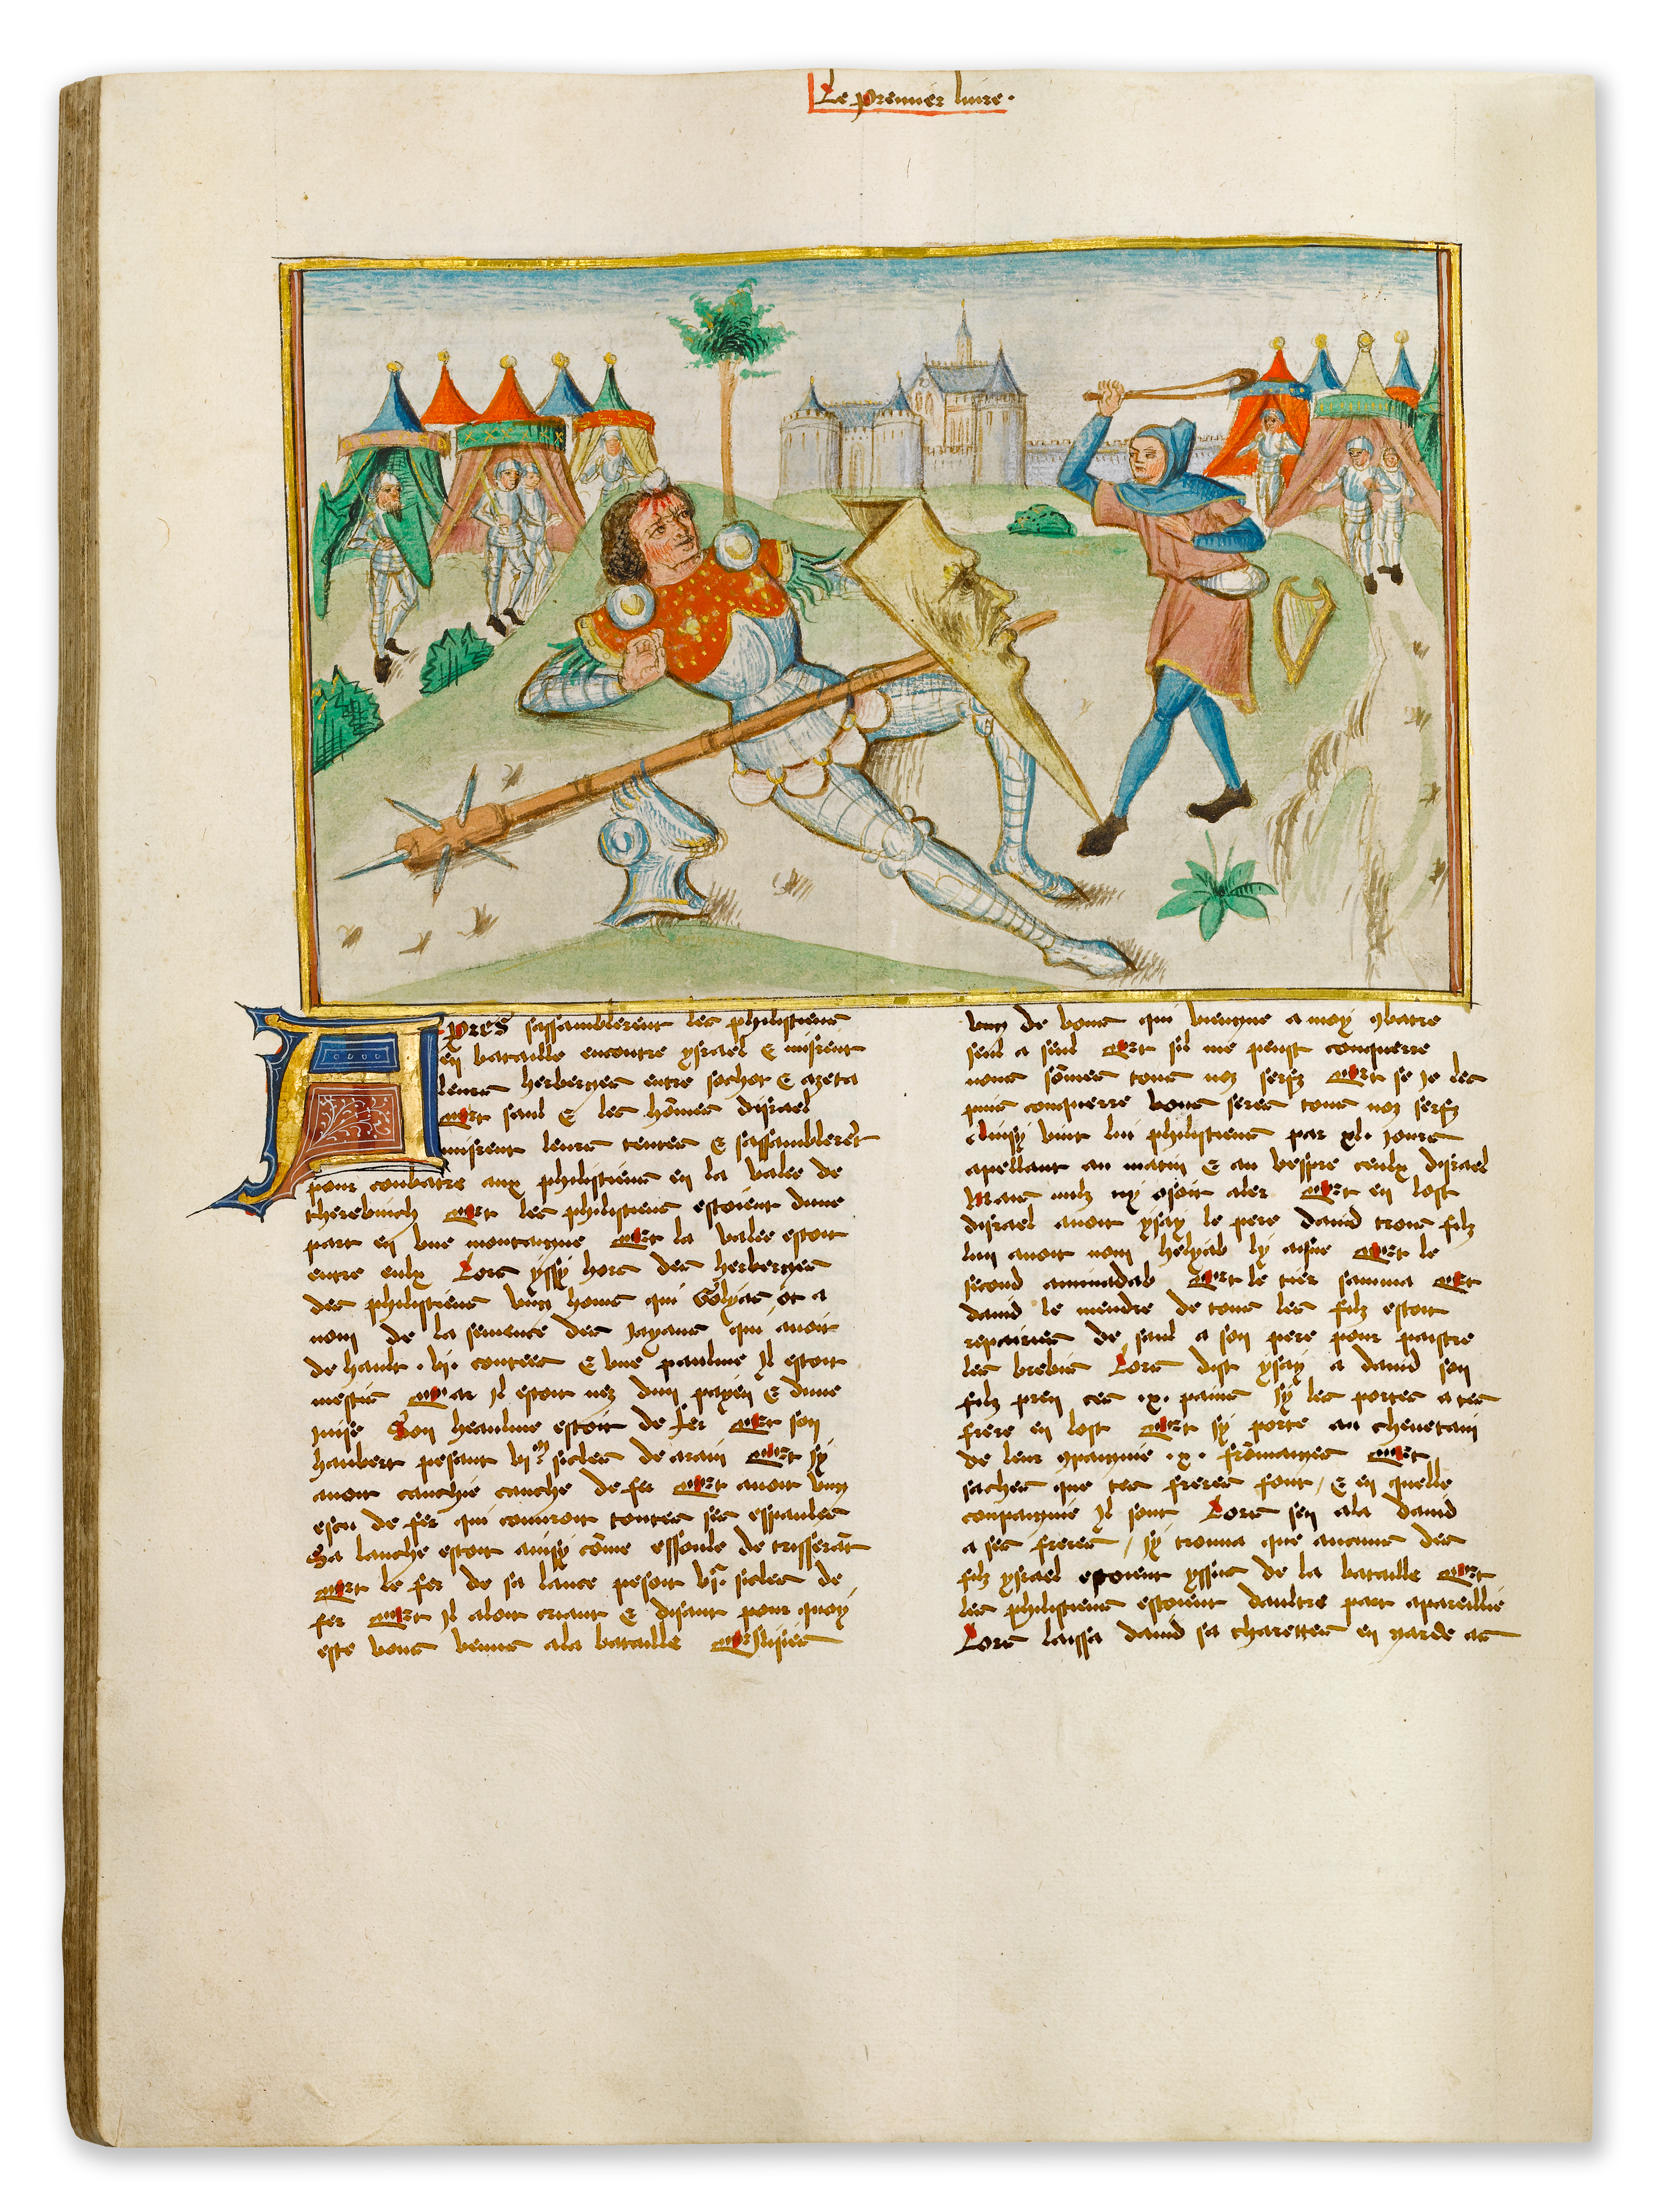 Le premier liure.
Apres sassamblerent les philistiens
en bataille encontre ysrael & misrent
leurs herberges entre sochot & azeta
Et saul & les hõmes disrael
misrent leurs tentes & sassamblerẽt
pour conbatre aux philistiens en la valee de
therebinth Et les philistiens estoient dune
part en vne montaigne Et la valee estoit
entre eulx Lors yssy hors des herberges
des philistiens vng home qui Golyas ot a
nom de la semence des jayans qui auoit
de hault .vj. coutees & vne paulme Il estoit
mestis Car Il estoit nez dun payen & dune
juise Son heaulme estoit de fer Et son
haubert pesant vjᵐ sicles de arain Et sy
auoit cauchie cauche de fer Et auoit vng
escu de fer qui couuroit toutes ses espaules
Sa lanche estoit ainsy cõme essoule de tisserãt
Et le fer de sa lance pesoit vjᶜ sicles de
fer Et Il aloit criant & disant pour quoy
este vous venus ala bataille Eslisies
vng de vous qui viengne a moy 9batre
seul a seul Et sil me peust conquerre
nous sõmes tous voz serfz Et se Je les
puis conquerre vous seres tous noz serfz
Ainsy vint lui philistiens par xl. jours
apellant au matin & au vespre ceulx disrael
Mais nulz ny osoit aler Et en lost
disrael auoit ysay le pere dauid trois filz
lun auoit nom helyab ly aisne Et le
second aminadab Et le tier samma Et
dauid le mendre de tous les filz estoit
repairies de saul a son pere pour paistre
les brebis Lors dist ysay a dauid son
filz pren ces .x. pains sy les portes a tes
frere en lost Et sy porte au cheuetain
de leur 9paignie .x. frõmages Et
saches que tes freres font / & en quelle
conpaignie Il sont Lors sen ala dauid
a ses freres / sy trouua que aucuns des
filz ysrael estoient yssus de la bataille Et
les philistiens estoient daultre part apareillie
Lors laissa dauid sa charettes en garde as